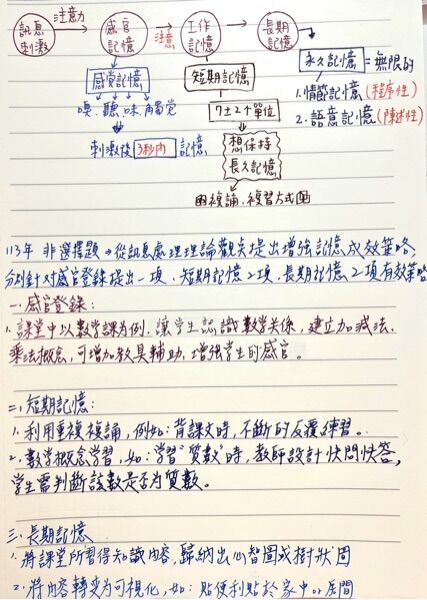 訊息 注意力 感官 工作 長期
刺激 記憶 注意 記憶 記憶
感覺記憶 短期記憶 永久記憶 = 無限的
嗅、聽、味、觸覺 7±2個單位 1.情節記憶(程序性)
2.語意記憶(陳述性)
刺激後 3秒內 記憶 想保持
長久記憶
用複誦、複習方式
113年 非選擇題→從訊息處理理論觀点提出增強記憶成效策略,
分別針對感官登錄提出一項、短期記憶2項、長期記憶2項有效策略
一、感官登錄:
1.課堂中以數學課為例,讓學生認識數學關係,建立加減法、
乘法概念,可增加教具輔助,增強學生的感官。
二、短期記憶:
1.利用重複複誦,例如:背課文時,不斷的反覆練習。
2.數學概念學習,如:學習"質數"時,教師設計快問快答,
學生需判斷該數是否為質數。
三、長期記憶
1.將課堂所習得知識內容,歸納出心智圖或樹狀圖
2.將內容轉變為可視化,如:貼便利貼於家中or房間